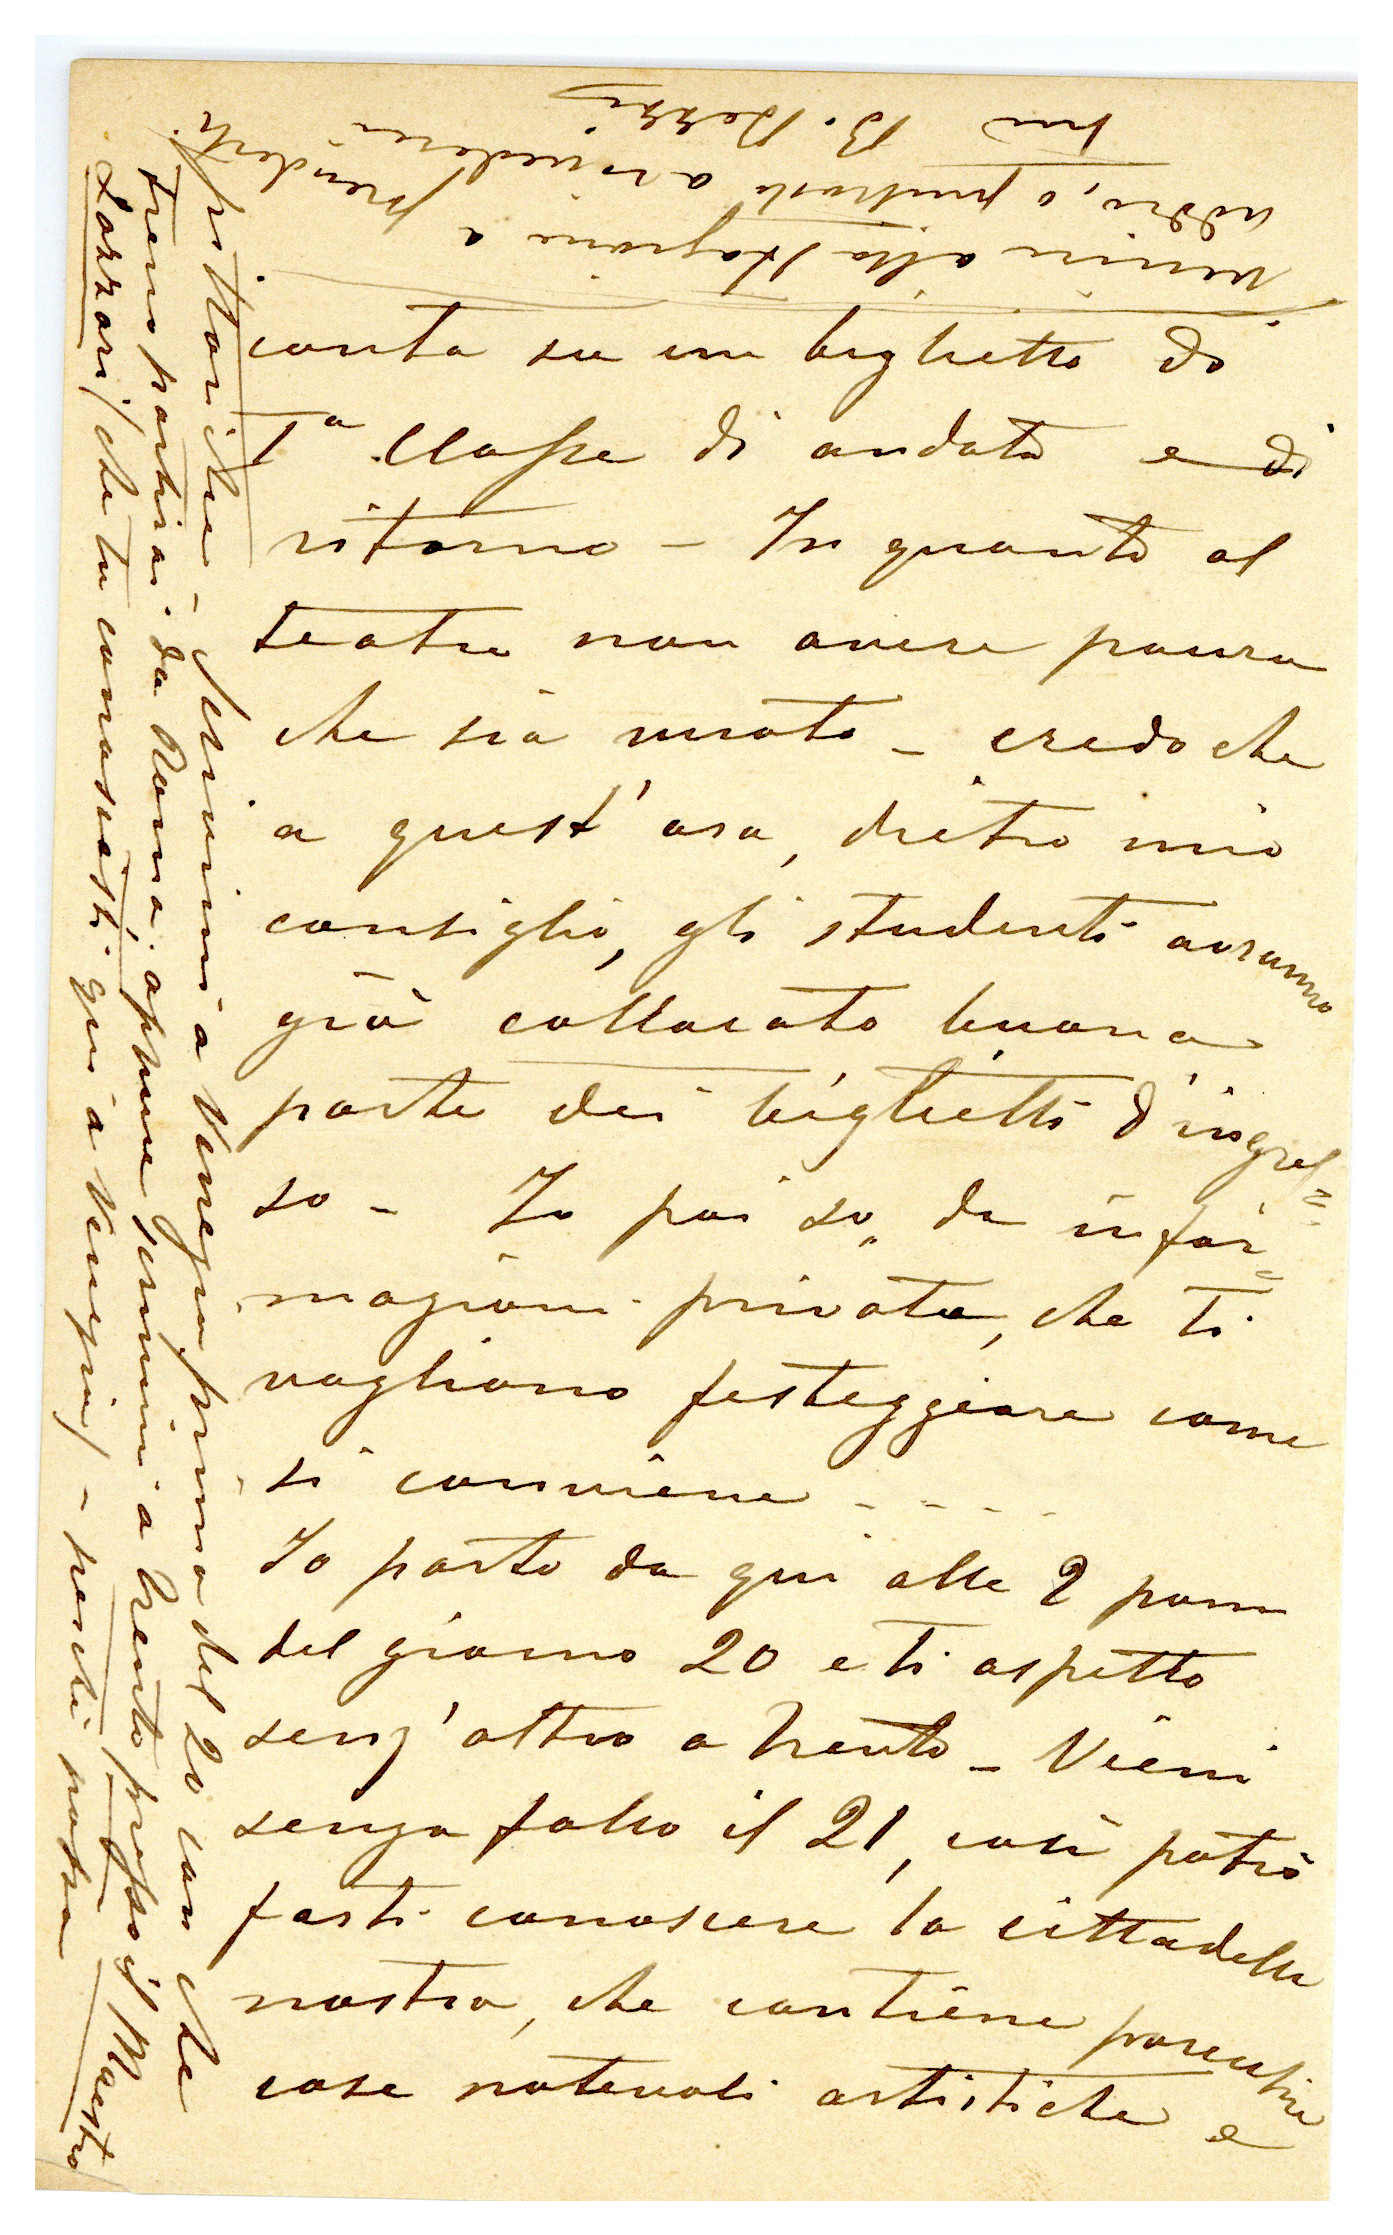 conta su un biglietto do
1a Classe di andata e di
ritorno - In quanto al
teatro non avere paura
che sia vuoto - credo che
a quest'ora, dietro mio
consiglio, gli studenti avranno
già collocato buona
parte dei biglietti d'ingres=
so - Io poi so, da infor=
mazioni private, che ti
vogliono festeggiare come
si conviene - - - -
Io parto da qui alle 2 pom
del giorno 20 e ti aspetto
senz'altro a Trento - Vieni
senza fallo il 21, così potrò
farti conoscere la cittadella
nostra, che contiene parecchie
cose notevoli artistiche e
pittoriche - Scrivimi a Venezia prima del 20 con che
treno partirai da Roma, oppure scrivimi a Trento presso il Maestro
Lazzari (che tu conoscesti qui a Venezia) - perchè possa
venire alla stazione a prenderti
addio, o piuttosto a rivederci
tuo B. Bezzi